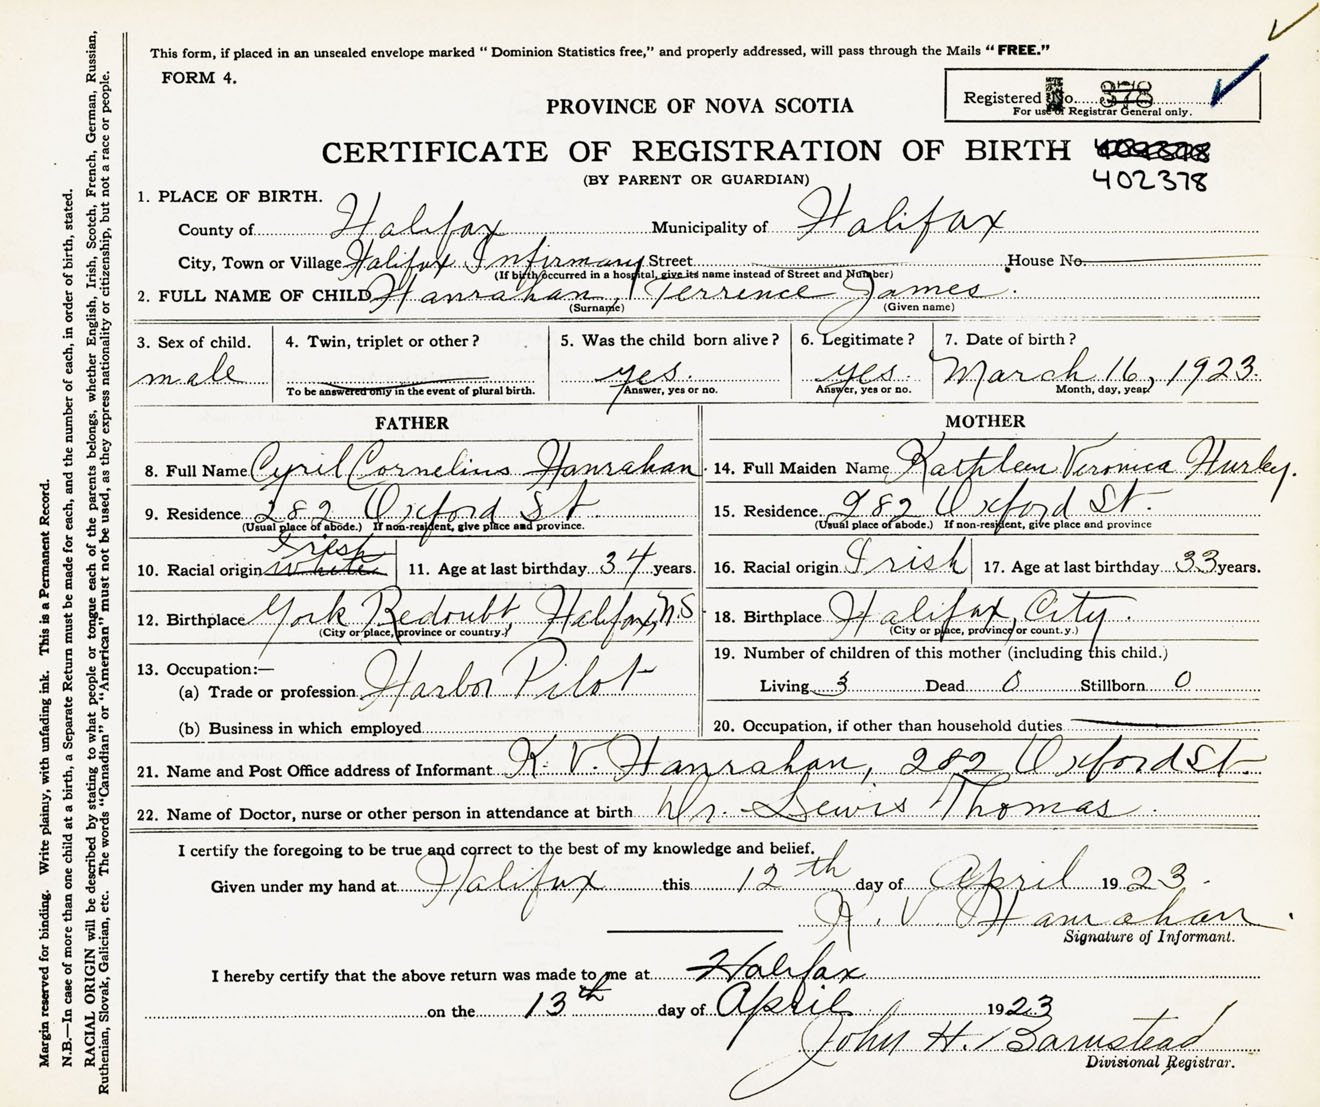 This form, if placed in an unsealed envelope marked "Dominion Statistics free," and properly addressed, will pass through the Mails "FREE."
FORM 4.
Registered No. 378
For use of Registrar General only.
PROVINCE OF NOVA SCOTIA
CERTIFICATE OF REGISTRATION OF BIRTH
402378
(BY PARENT OR GUARDIAN)
1. PLACE OF BIRTH.
County of Halifax Municipality of Halifax
City, Town or Village Halifax Infirmary Street House No.
(If birth occurred in a hospital, give its name instead of Street and Number)
2. FULL NAME OF CHILD Hanrahan, Terrence James.
(Surname) (Given name)
3. Sex of child. 4. Twin, triplet or other? 5. Was the child born alive? 6. Legitimate? 7. Date of birth?
male yes. yes. March 16, 1923.
To be answered only in the event of plural birth. Answer, yes or no. Answer, yes or no. Month, day, year.
FATHER MOTHER
8. Full Name Cyril Cornelius Hanrahan 14. Full Maiden Name Kathleen Veronica Hurley.
9. Residence 282 Oxford St. 15. Residence. 282 Oxford St.
(Usual place of abode.) If non-resident, give place and province. (Usual place of abode.) If non-resident, give place and province
Irish
10. Racial origin White 11. Age at last birthday 34 years. 16. Racial origin Irish 17. Age at last birthday 33 years.
12. Birthplace York Redoubt, Halifax, N.S. 18. Birthplace Halifax, City.
(City or place, province or country.) (City or place, province or count.y.)
13. Occupation:— 19. Number of children of this mother (including this child.)
(a) Trade or profession Harbor Pilot Living 3 Dead 0 Stillborn 0
(b) Business in which employed 20. Occupation, if other than household duties
21. Name and Post Office address of Informant K. V. Hanrahan, 282 Oxford St.
22. Name of Doctor, nurse or other person in attendance at birth Dr. Lewis Thomas.
I certify the foregoing to be true and correct to the best of my knowledge and belief.
Given under my hand at Halifax this 12th day of April 1923.
K. V. Hanrahan.
Signature of Informant.
I hereby certify that the above return was made to me at Halifax
on the 13th day of April 1923
John H. Barnstead
Divisional Registrar.
Margin reserved for binding. Write plainly, with unfading ink. This is a Permanent Record.
N.B.—In case of more than one child at a birth, a Separate Return must be made for each, and the number of each, in order of birth, stated.
RACIAL ORIGIN will be described by stating to what people or tongue each of the parents belongs, whether English, Irish, Scotch, French, German, Russian,
Ruthenian, Slovak, Galician, etc. The words "Canadian" or "American" must not be used, as they express nationality or citizenship, but not a race or people.